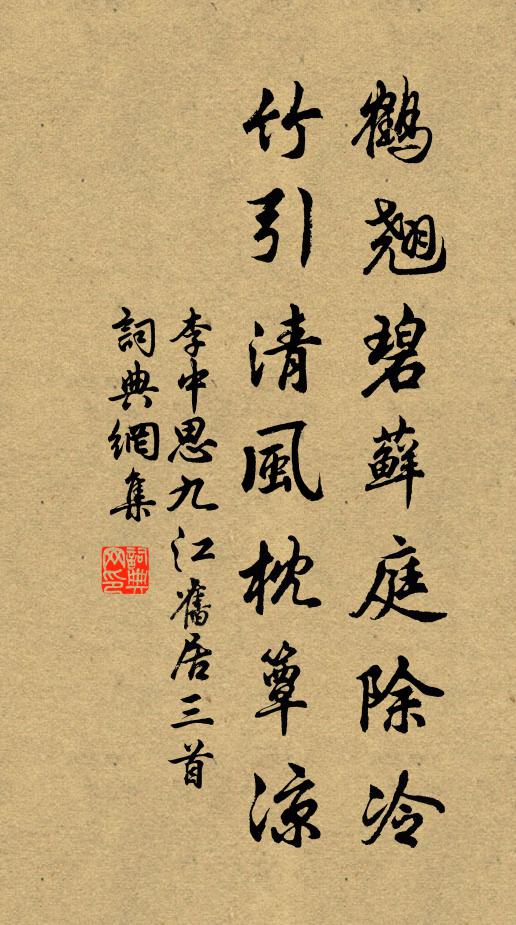 鶴翹碧蘚庭除冷
竹引清風枕簟涼
李中思九江舊居三首
詞典網集
詞典网印